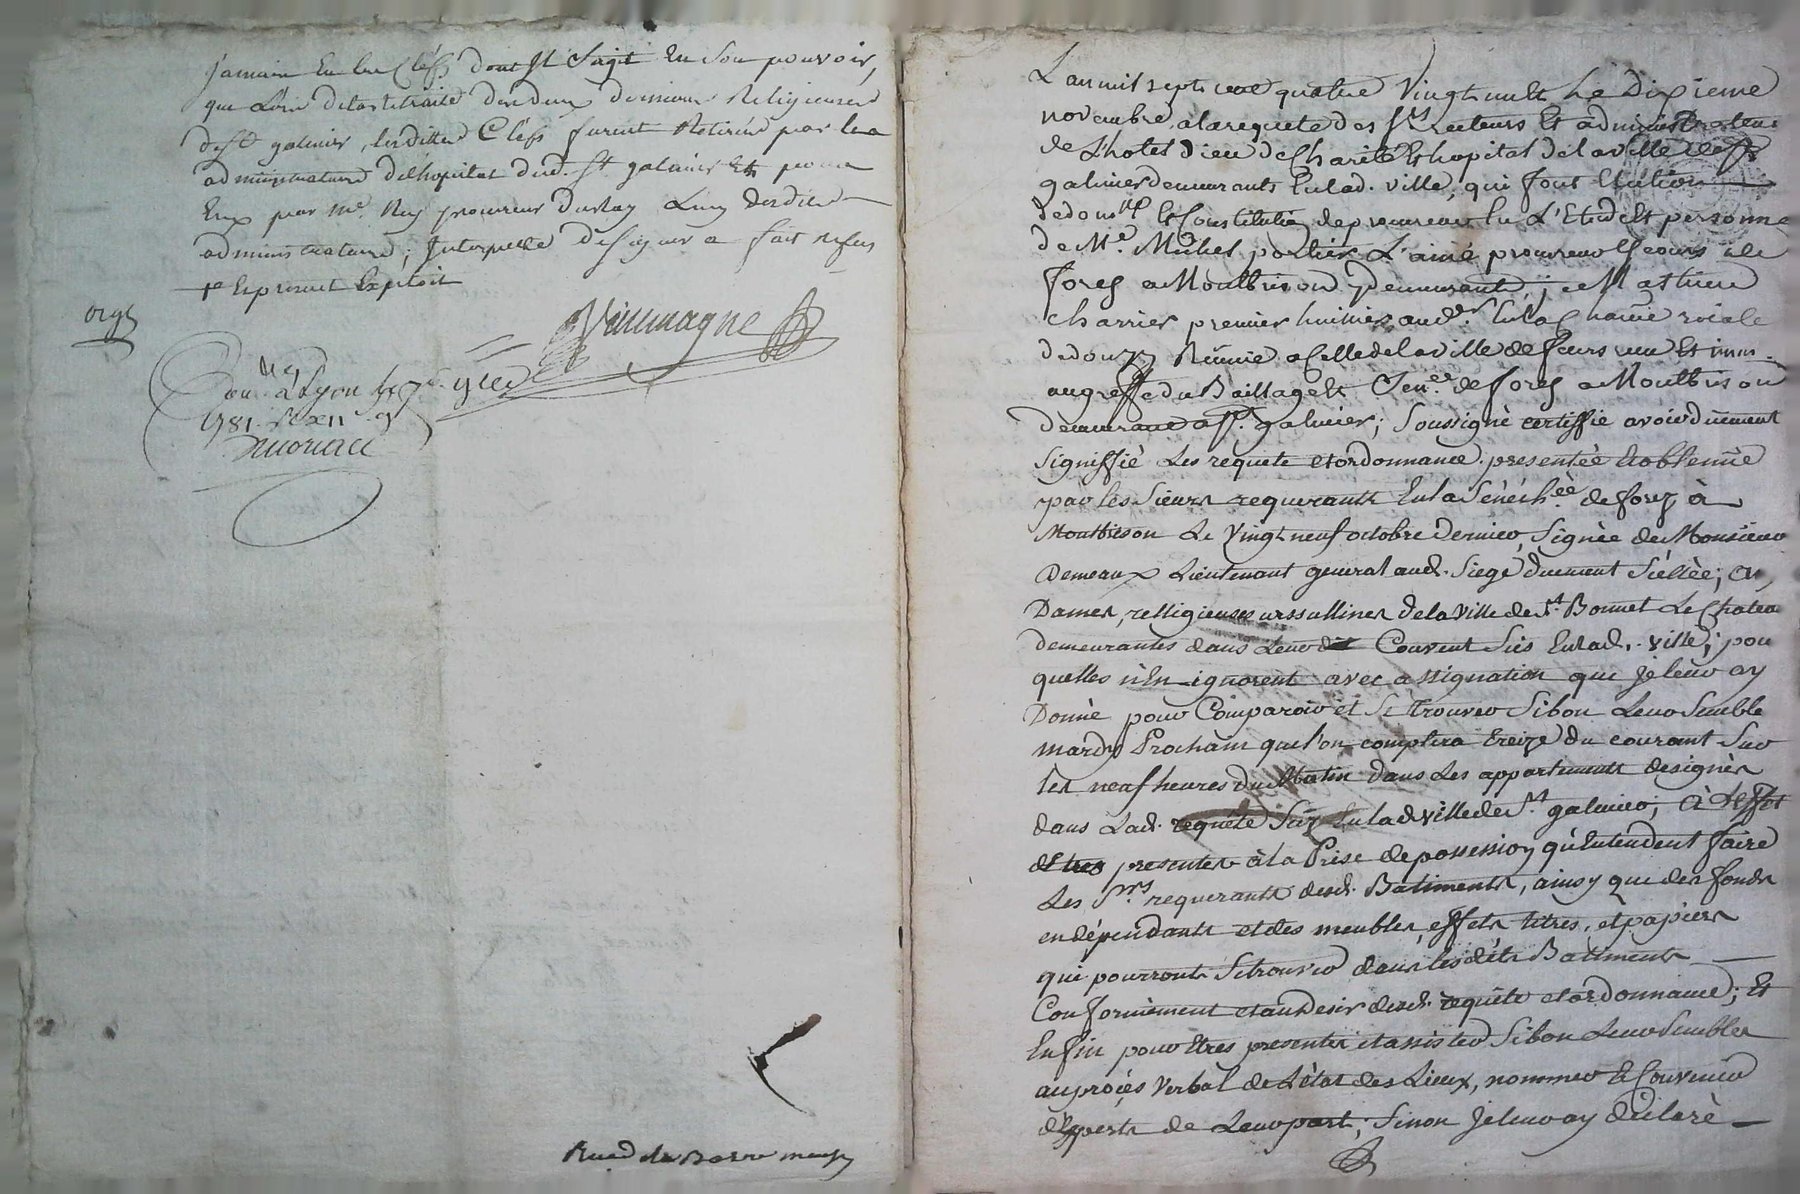 jamais Eu les Clefs dont Il Sagit En Son pouvoir,
que Lors de la retraitte des deux dernieres Religieuses
de St galmier, lesdittes Clefs furent Retirées par les
administrateurs de lhopital dud. St galmier Et pour
Eux par Me. Rey procureur L'un desdits
administrateurs; Interpellé de Signer a fait refus
Le present Exploit
Vinmagne
a Lyon le
1781.
Rue de la Barre
L'an mil sept cent quatre Vingt huit Le Dixieme
novembre, a la requete des Srs. recteurs Et administrateurs
de L'hotel Dieu de Charité Et hopital de la ville de St
galmier demeurants En lad. ville, qui font Election
de domlle Et Constitution de procureur En L'Etude Et personne
de Me. Michel portier L'ainé procureur Es cours de
forez a Montbrison y demeurant; je Mathieu
Charrier premier huissier aud.er En la Chatnie roiale
de donzy Reünie a Celle de la ville de feurs reçu Et imm.
au greffe du Baillage Et Sénée. de forez a Montbrison
demeurant a St. galmier; Soussigné certiffie avoir duement
Signiffié Les requete et ordonnance presentée Et obtenue
par les Sieurs requerants En la Sénéchée de forez à
Montbrison Le Vingt neuf octobre Dernier, Signée de Monsieur
Demeaux Lieutenant general aud. Siege duement Sçellée; aux
Dames relligieuses urssullines de la Ville de St. Bonnet Le Chateau
demeurantes dans Leurdit Couvent Sis En lad. ville; pour
quelles n'En ignorent avec assignation que Je leur ay
Donné pour Comparoir et Se trouver Si bon Leur Semble
mardy Prochain que l'on comptera treize du courant Sur
les neuf heures du Matin dans Les appartements designés
dans Lad. requete Sis En lad ville de St. galmier; à L'effet
d'Etres presentes à la Prise de possession qu'Entendent faire
Les Srs. requerants desd. Batiments, ainsy que des fonds
en dépendants et des meubles, effets, titres, et papiers
qui pourront Se trouver dans lesdits Batiments
Conformement et au Desir desd. requête et ordonnance; Et
Enfin pour Etres presentes et assister Si bon Leur Semble
au procés Verbal de L'état des Lieux, nommer Et Convenir
d'Experts de Leur part; Sinon Je leur ay declaré